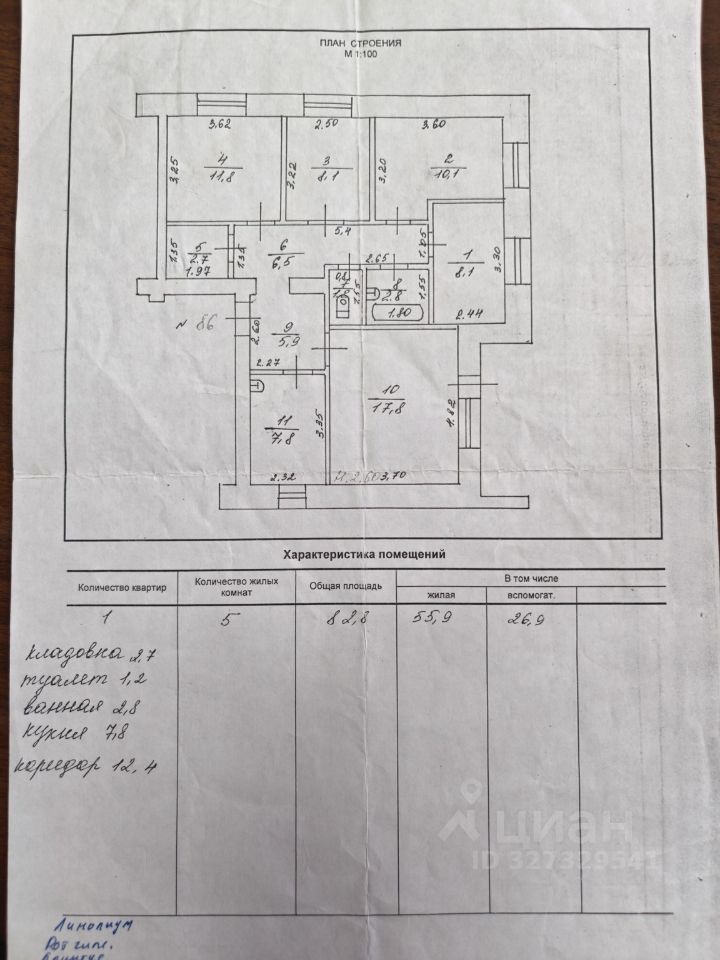 ПЛАН СТРОЕНИЯ
М 1:100
3.62
2.50
3.60
4
11,8
3,25
3
8,1
3,22
2
10,1
3,20
5,4
5
2.7
1.97
1.35
1.35
6
6,5
2.65
1.05
1
8,1
3,30
2.44
8
2.8
1.55
1.80
1.55
№ 86
2.60
9
5,9
2.27
10
17,8
4.82
11
7,8
3.35
2.32
H. 2,60
3,70
Характеристика помещений
Количество квартир
Количество жилых
комнат
Общая площадь
В том числе
жилая
вспомогат.
1
5
82,8
55,9
26,9
кладовка 2,7
туалет 1,2
ванная 2,8
кухня 7,8
коридор 12,4
циан
ID 327329541
Линолиум